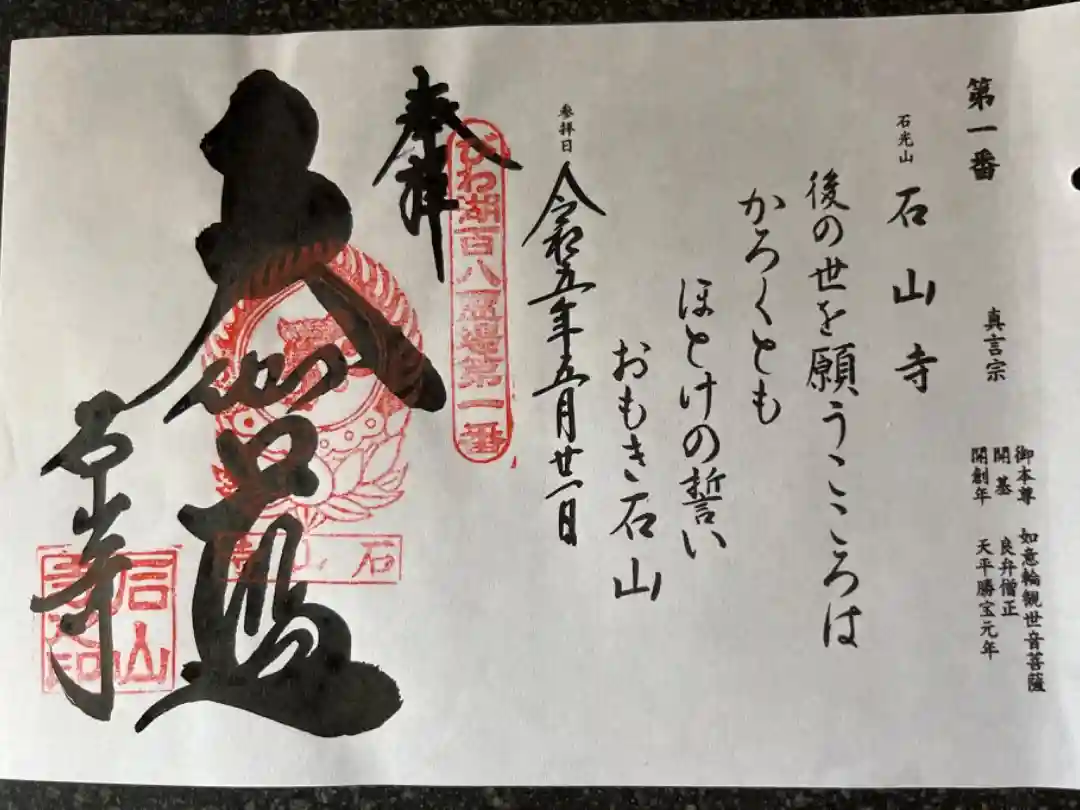 第一番
真言宗
御本尊 如意輪観世音菩薩
開基 良弁僧正
開創年 天平勝宝元年
石光山 石山寺
後の世を願うこころは
かろくとも
ほとけの誓い
おもき石山
参拝日 令和五年五月廿一日
奉拝
びわ湖百八霊場第一番
大伽藍
石山寺
石山寺